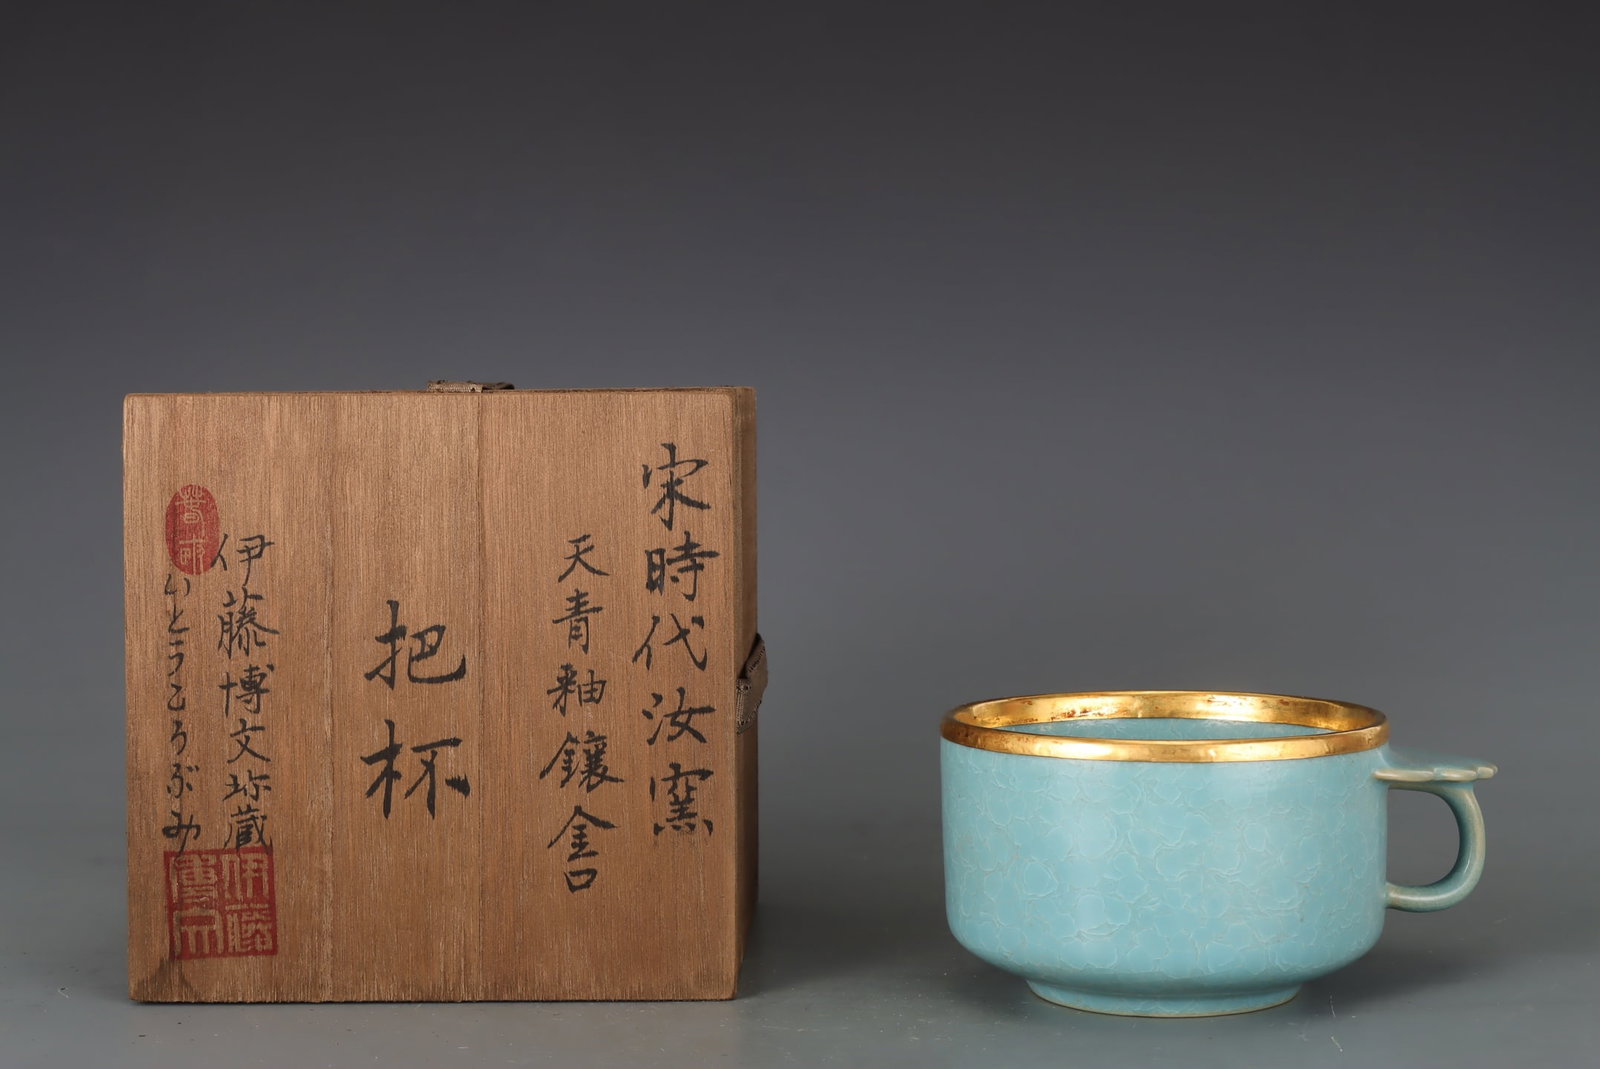 宋時代汝窯
天青釉鑲金口
把杯
伊藤博文珎蔵
いとうひろぶみ
伊藤博文